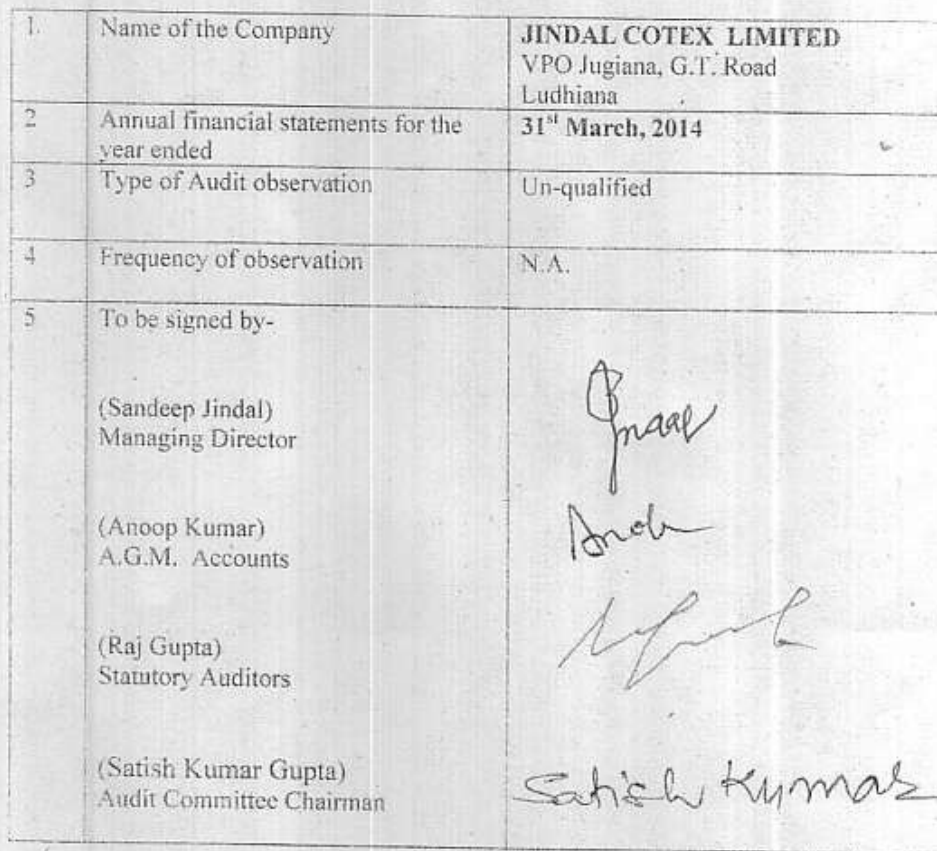 1. Name of the Company JINDAL COTEX LIMITED
VPO Jugiana, G.T. Road
Ludhiana
2 Annual financial statements for the 31st March, 2014
year ended
3 Type of Audit observation Un-qualified
4 Frequency of observation N.A.
5 To be signed by-
(Sandeep Jindal)
Managing Director
(Anoop Kumar)
A.G.M. Accounts
(Raj Gupta)
Statutory Auditors
(Satish Kumar Gupta)
Audit Committee Chairman Satish Kumar